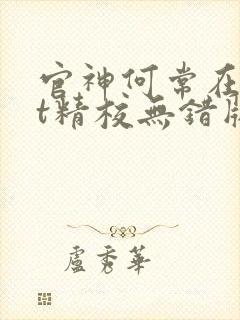 官神何常在
t精校無錯版
盧秀華